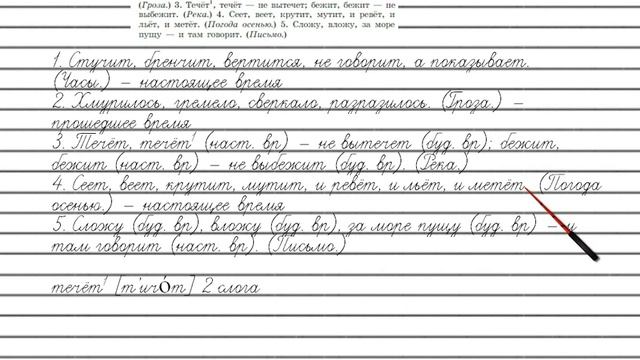 (Гроза.) 3. Течёт¹, течёт — не вытечет; бежит, бежит — не
выбежит. (Река.) 4. Сеет, веет, крутит, мутит, и ревёт, и
льёт, и метёт. (Погода осенью.) 5. Сложу, вложу, за море
пущу — и там говорит. (Письмо.)
1. Стучит, бренчит, вертится, не говорит, а показывает.
(Часы.) – настоящее время
2. Хмурилось, гремело, сверкало, разразилось. (Гроза.) –
прошедшее время
3. Течёт, течёт¹ (наст. вр) – не вытечет (буд. вр); бежит,
бежит (наст. вр) – не выбежит (буд. вр). (Река.)
4. Сеет, веет, крутит, мутит, и ревёт, и льёт, и метёт. (Погода
осенью.) – настоящее время
5. Сложу (буд. вр), вложу (буд. вр), за море пущу (буд. вр) – и
там говорит (наст. вр). (Письмо.)
течёт¹ [т'ич'о́т] 2 слога